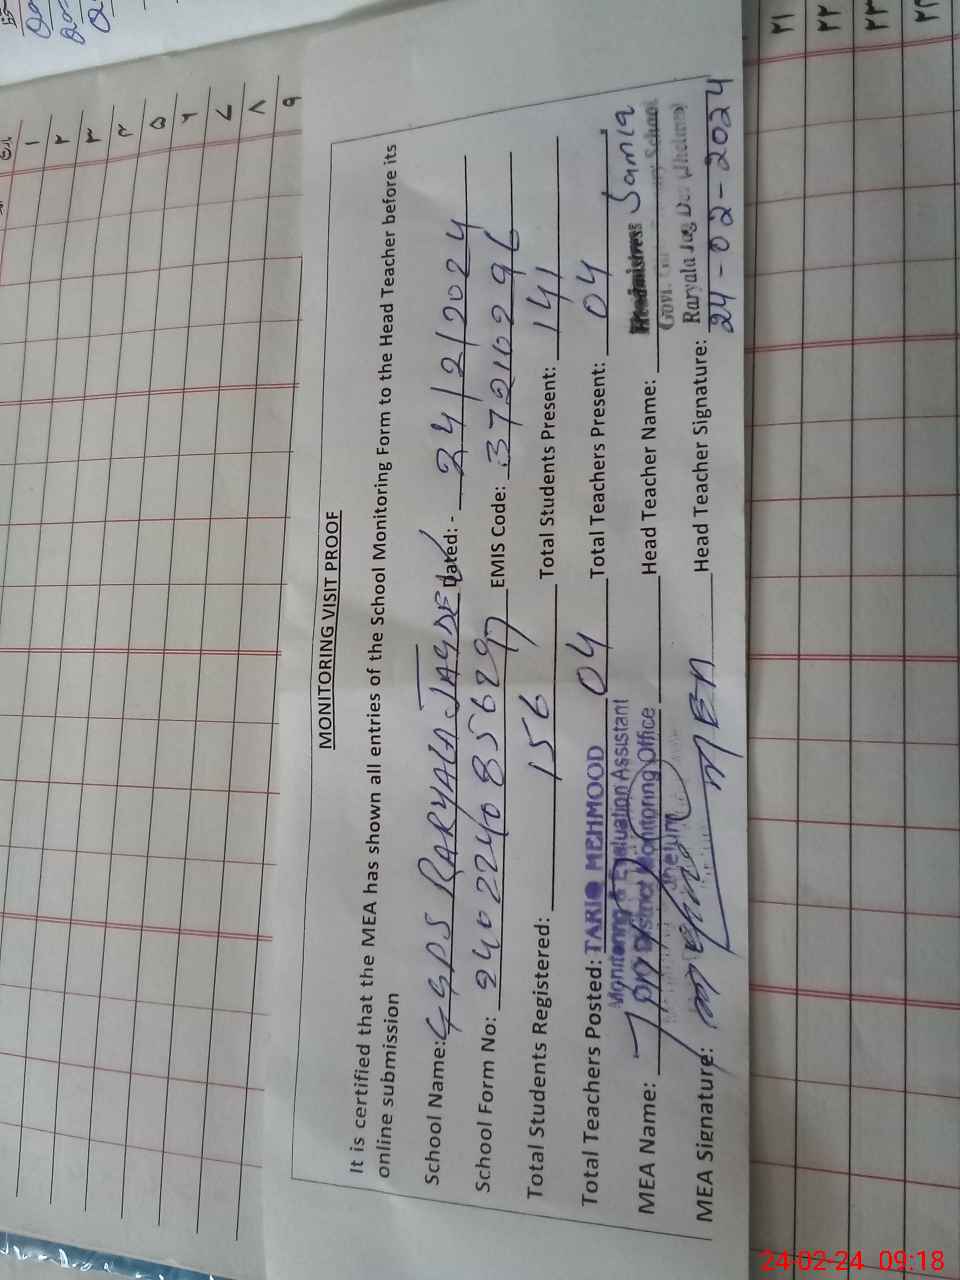 MONITORING VISIT PROOF
It is certified that the MEA has shown all entries of the School Monitoring Form to the Head Teacher before its
online submission
School Name: GGPS RARYALA JAGDEV Dated: - 24/2/2024
School Form No: EMIS Code: 37210296
Total Students Registered: 156 Total Students Present: 141
Total Teachers Posted: 04 Total Teachers Present: 04
TARIQ MEHMOOD
Monitoring & Evaluation Assistant
District Monitoring Office
Jhelum
MEA Name: Head Teacher Name: Samia
Headmistress
Govt. School
Raryala Jag Dev (Jhelum)
MEA Signature: Head Teacher Signature:
24-02-2024
۱
۲
۳
۴
۵
۶
۷
۸
۹
۲۱
۲۲
۲۳
۲۴
24-02-24 09:18